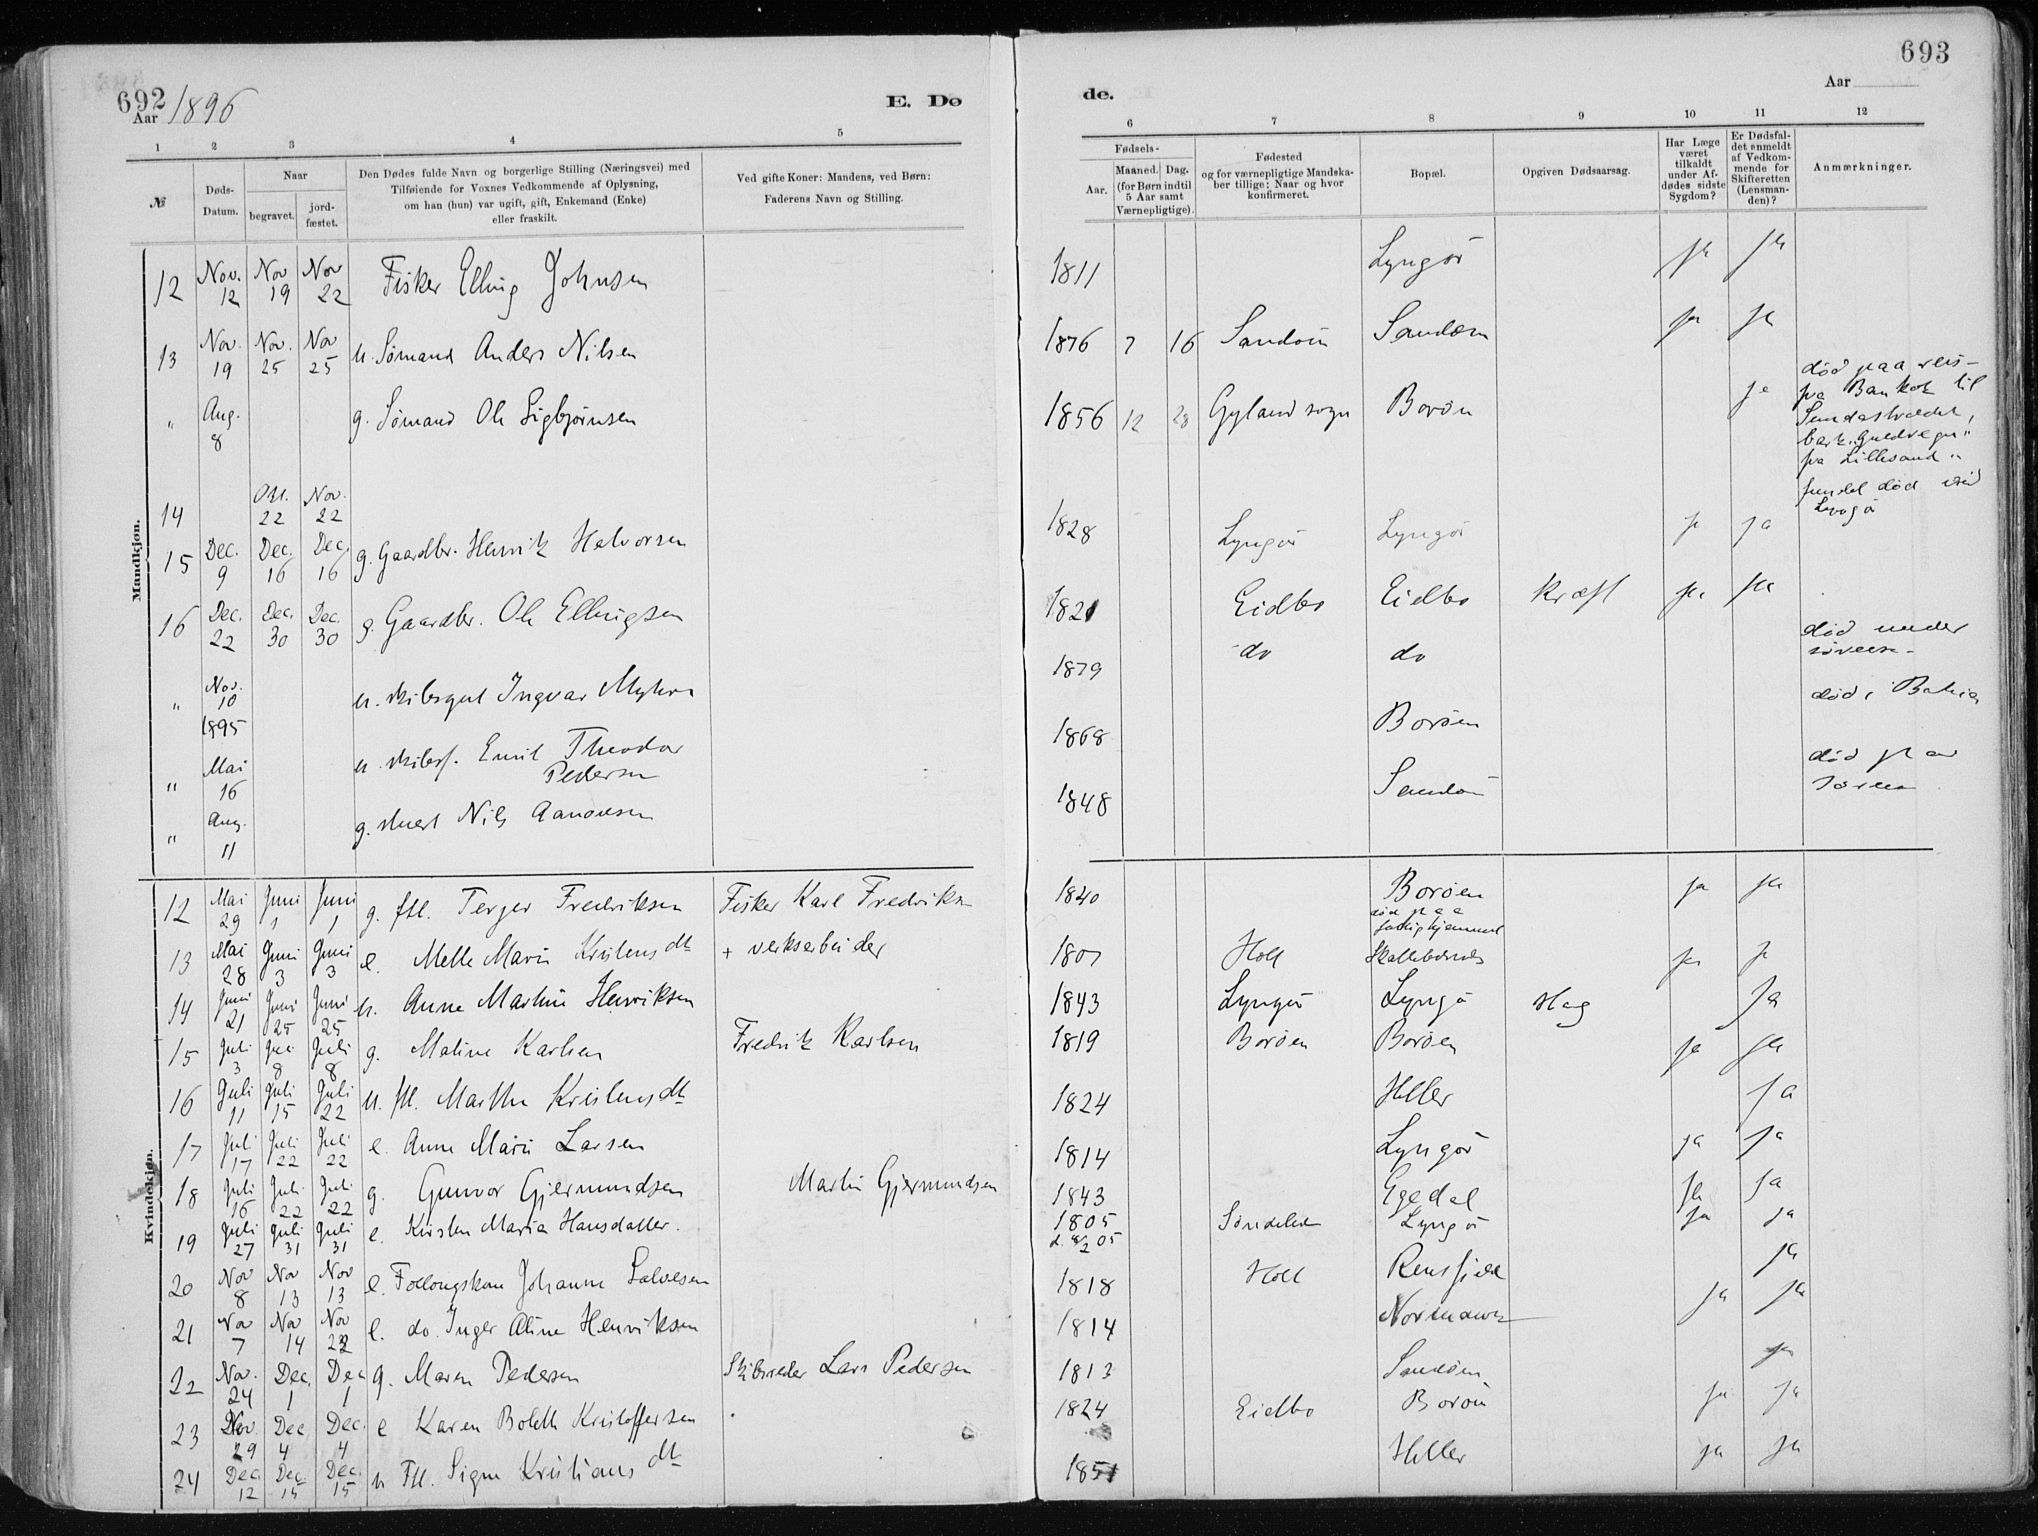 692
Aar 1896
E. Dø
1 2 3 4 5
№
Døds-
Datum.
Naar
begravet.
jord-
fæstet.
Den Dødes fulde Navn og borgerlige Stilling (Næringsvei) med
Tilføiende for Voxnes Vedkommende af Oplysning,
om han (hun) var ugift, gift, Enkemand (Enke)
eller fraskilt.
Ved gifte Koner: Mandens, ved Børn:
Faderens Navn og Stilling.
Mandkjøn.
12 Nov. 12 Nov 19 Nov 22 Fisker Elling Johnsen
13 Nov. 19 Nov. 25 Nov 25 u. Sømand Anders Nilsen
" Aug. 8 g. Sømand Ole Sigbjørnsen
14 Okt. 22 Nov. 22
15 Dec. 9 Dec. 16 Dec. 16 g. Gaardbr. Henrik Halvorsen
16 Dec. 22 Dec. 30 Dec. 30 g. Gaardbr. Ole Ellingsen
" Nov. 10 1895 u. skibsgut Ingvar
" Mai 16 u. skibsf. Emil Theodor
Pedersen
" Aug. 11 g. Nils Aanonsen
Kvindekjøn.
12 Mai 29 Juni 1 Juni 1 g. ftl. Terger Fredriksen Fisker Karl Fredriksen
13 Mai 28 Juni 3 Juni 3 e. Mette Marie Kristensdt + verksarbeider
14 Juni 21 Juni 25 Juni 25 u. Anne Martine Henriksen
15 Juli 3 Juli 8 Juli 8 g. Maline Karlsen Fredrik Karlsen
16 Juli 11 Juli 15 Juli 22 u. ftl. Marthe Kristensdt
17 Juli 17 Juli 22 Juli 22 e. Anne Marie Larsen
18 Juli 16 Juli 22 Juli 22 g. Gunvor Gjermundsen Martin Gjermundsen
19 Juli 27 Juli 31 Juli 31 e. Kirsten Maria Hansdatter.
20 Nov 8 Nov 13 Nov 13 e. Føllougskone Johanne Salvesen
21 Nov 7 Nov 14 Nov 22 e. do. Inger Aline Henriksen
22 Nov. 24 Dec. 1 Dec 1 g. Maren Pedersen Skibsreder Lars Pedersen
23 Nov 29 Dec 4 Dec. 4 e Karen Boleth Kristoffersen
24 Dec. 12 Dec. 15 Dec. 15 u Ftl. Signe Kristiansdt
693
de.
Aar
6 7 8 9 10 11 12
Fødsels-
Aar.
Maaned. Dag.
(for Børn indtil
5 Aar samt
Værnepligtige).
Fødested
og for værnepligtige Mandska-
ber tillige: Naar og hvor
konfirmeret.
Bopæl.
Opgiven Dødsaarsag.
Har Læge
været
tilkaldt
under Af-
dødes sidste
Sygdom?
Er Dødsfal-
det anmeldt
af Vedkom-
mende for
Skifteretten
(Lensman-
den)?
Anmærkninger.
1811 Lyngør ja ja
1876 7 16 Sandøen Sandøen ja ja
1856 12 28 Gyland sogn Borøen ja
død paa reis-
fra Bankok til
Sundastrædet,
bark "Guldregn"
fra Lillesand
fundet død ved
Lyngør
1828 Lyngør Lyngør ja ja
1821 Eidbo Eidbo Kræft ja ja
1879 do do død under
1868 Borøen død i Bahia
1848 Sandøen død paa
søreise
1840 Borøen ja ja
død paa
fattighjemmet
1807 Holt ja ja
1843 Lyngør Lyngør Slag ja
1819 Borøen Borøen ja ja
1824 Heller ja
1814 Lyngør ja ja
1843 Egedal ja ja
1805 Søndeled Lyngør ja ja
1818 Holt Rensfjeld ja
1814 Nordmarks ja ja
1813 Sandøen ja
1824 Eidbo Borøen ja ja
1851 Heller ja ja